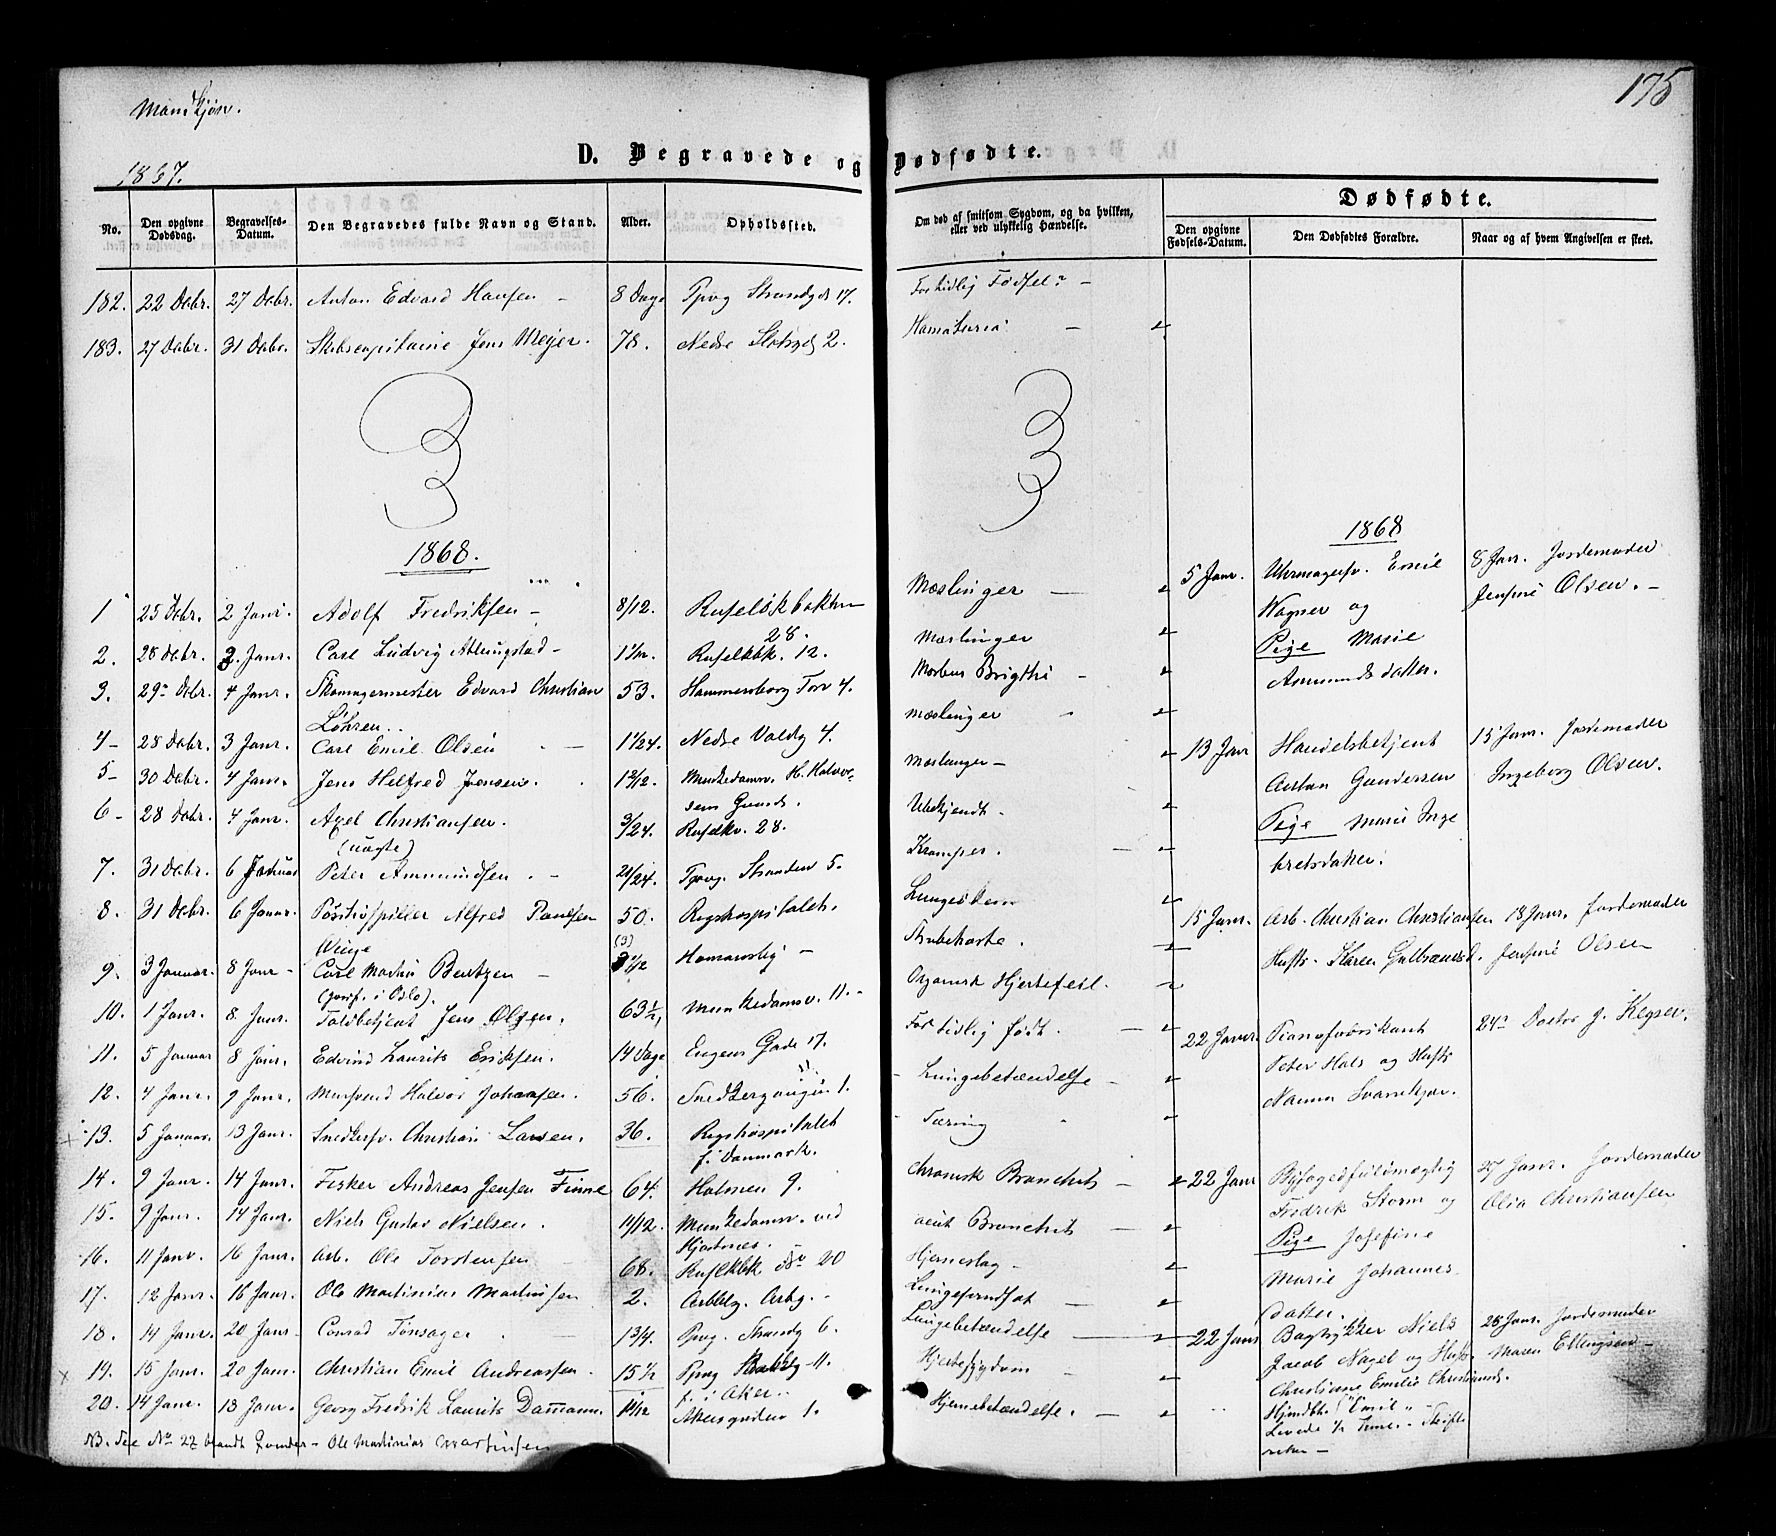 Mandkjøn.
175
D. Begravede og Dødfødte.
1867.
No.
Den opgivne Dødsdag.
Begravelses-Datum.
Den Begravedes fulde Navn og Stand.
Alder.
Opholdssted.
Om død af smitsom Sygdom, og da hvilken, eller ved ulykkelig Hændelse.
Dødfødte.
Den opgivne Fødsels-Datum.
Den Dødfødtes Forældre.
Naar og af hvem Angivelsen er skeet.
182. 22 Debr. 27 Debr. Anton Edvard Hansen – 8 Dage Ppvg Strandgd 17. For tidlig Fødsel –
183. 27 Debr. 31 Debr. Skibscapitaine Jens Meyer. 78. Nedre Slotsgd 2. Hamaturia
1868.
1 25 Debr. 2 Janr. Adolf Fredriksen – 8/12. Ruseløkbakken 28. Mæslinger
2. 28 Debr. 2. Janr. Carl Ludvig Atlungstad – Ruselkbk. 12. Mæslinger
3. 29 Debr. 4 Janr. Skomagermester Edvard Christian Løhren. 53. Hammersborg Torv 4. Morbus Brigthi
4 – 28 Debr. 3 Janr. Carl Emil Olsen 1 1/24. Nedre Voldg 4. Mæslinger
5 – 30 Debr. 4 Janr. Jens Helfred Jensen. Munkedamsv. H. Halvorsens Gaard. Mæslinger –
6 – 28 Debr. 4 Janr. Axel Christiansen. (uægte) 3/24. Ruselkv. 28. Ubekjendt.
7. 31 Debr. 6 Januar Peter Ammundsen 21/24. Ppvg. Stranden 5. Kramper.
8. 31 Debr. 6 Januar. Positivspiller Alfred Paulsen Winge 50. Rigshospitalet. Lungeødem
9. 3 Januar. 8 Janr – Carl Martin Bentzen – (jordf. i Oslo). (3) Homansbg – Strubehoste.
10. 1 Janr. 8 Janr. Toldbetjent Jens Olsen. 63 1/2, Munkedamsv. 11. – Organisk Hjertefeil.
11. 5 Januar 8 Janr. Edvind Laurits Eriksen. 14 Dage Eugens Gade 17. For tidlig født.
12. 4 Janr. 9 Janr. Mursvend Halvor Johansen. 56. Snedkergangen 1. Lungebetændelse
13. 5 Januar. 13 Janr. Snedkersv. Christian Larsen. 36. Rigshospitalet f. i Danmark. Tæring
14. 9 Janr. 14 Janr. Fisker Andreas Jensen Finne 64. Holmen 9. chronisk Bronchit
15. 9 Janr. 14 Janr. Niels Gustav Nielsen. 11/12. Munkedamsv. ved Hjortnes. acut Bronchit
16. 11 Janr. 16 Janr. Arb. Ole Torstensen 68. Ruselkbk No 20 Hjerneslag –
17. 12 Janr. 16 Janr. Ole Martinius Martinsen 2. Arbblg. Arbg. – Lungeforndsat
18. 14 Janr. 20 Janr. Conrad Tønsager. 13/4. Ppvg. Strandg 6. Lungebetændelse
19. 15 Janr. 20 Janr. Christian Emil Andreassen. 15 1/2 Ppvg – 11. f. i Aker. Hjertesygdom
20. 14 Janr. 13 Janr. Georg Fredrik Laurits Dammann. 11/12 Akersgaden 1. Hjernebetændelse.
NB. See No 22 blandt Qvinder – Ole Martinius Martinsen
1868
5 Janr. Uhrmagersv. Emil Wagner og Pige Marie Ammundsdatter. 8 Janr. Jordemoder Jensine Olsen. –
13 Janr Handelsbetjent Gundersen Pige Marie Inge bretsdatter. 15 Janr. Jordemoder Ingeborg Olsen.
15 Janr. Arb. Christian Christiansen Hustr. Karen Gulbrandsd. 18 Janr. Jordemoder Jensine Olsen
22 Janr. Pianofabrikant Peter Hals og Hustr Nanna Svanekjær. 24 Doctor J. Keyser.
22 Janr Byfogedfuldmægtig Fredrik Storm og Pige Josefine Marie Johannes datter. 27 Janr. Jordemoder Olia Christiansen
22 Janr Bogtrykker Niels Jacob Nagel og Hustr. Christiane Emilie Christiansd. 28 Janr. Jordemoder Maren Ellingsen –
Hjemdbt. "Emil" –
Levede 1/2 Time. –